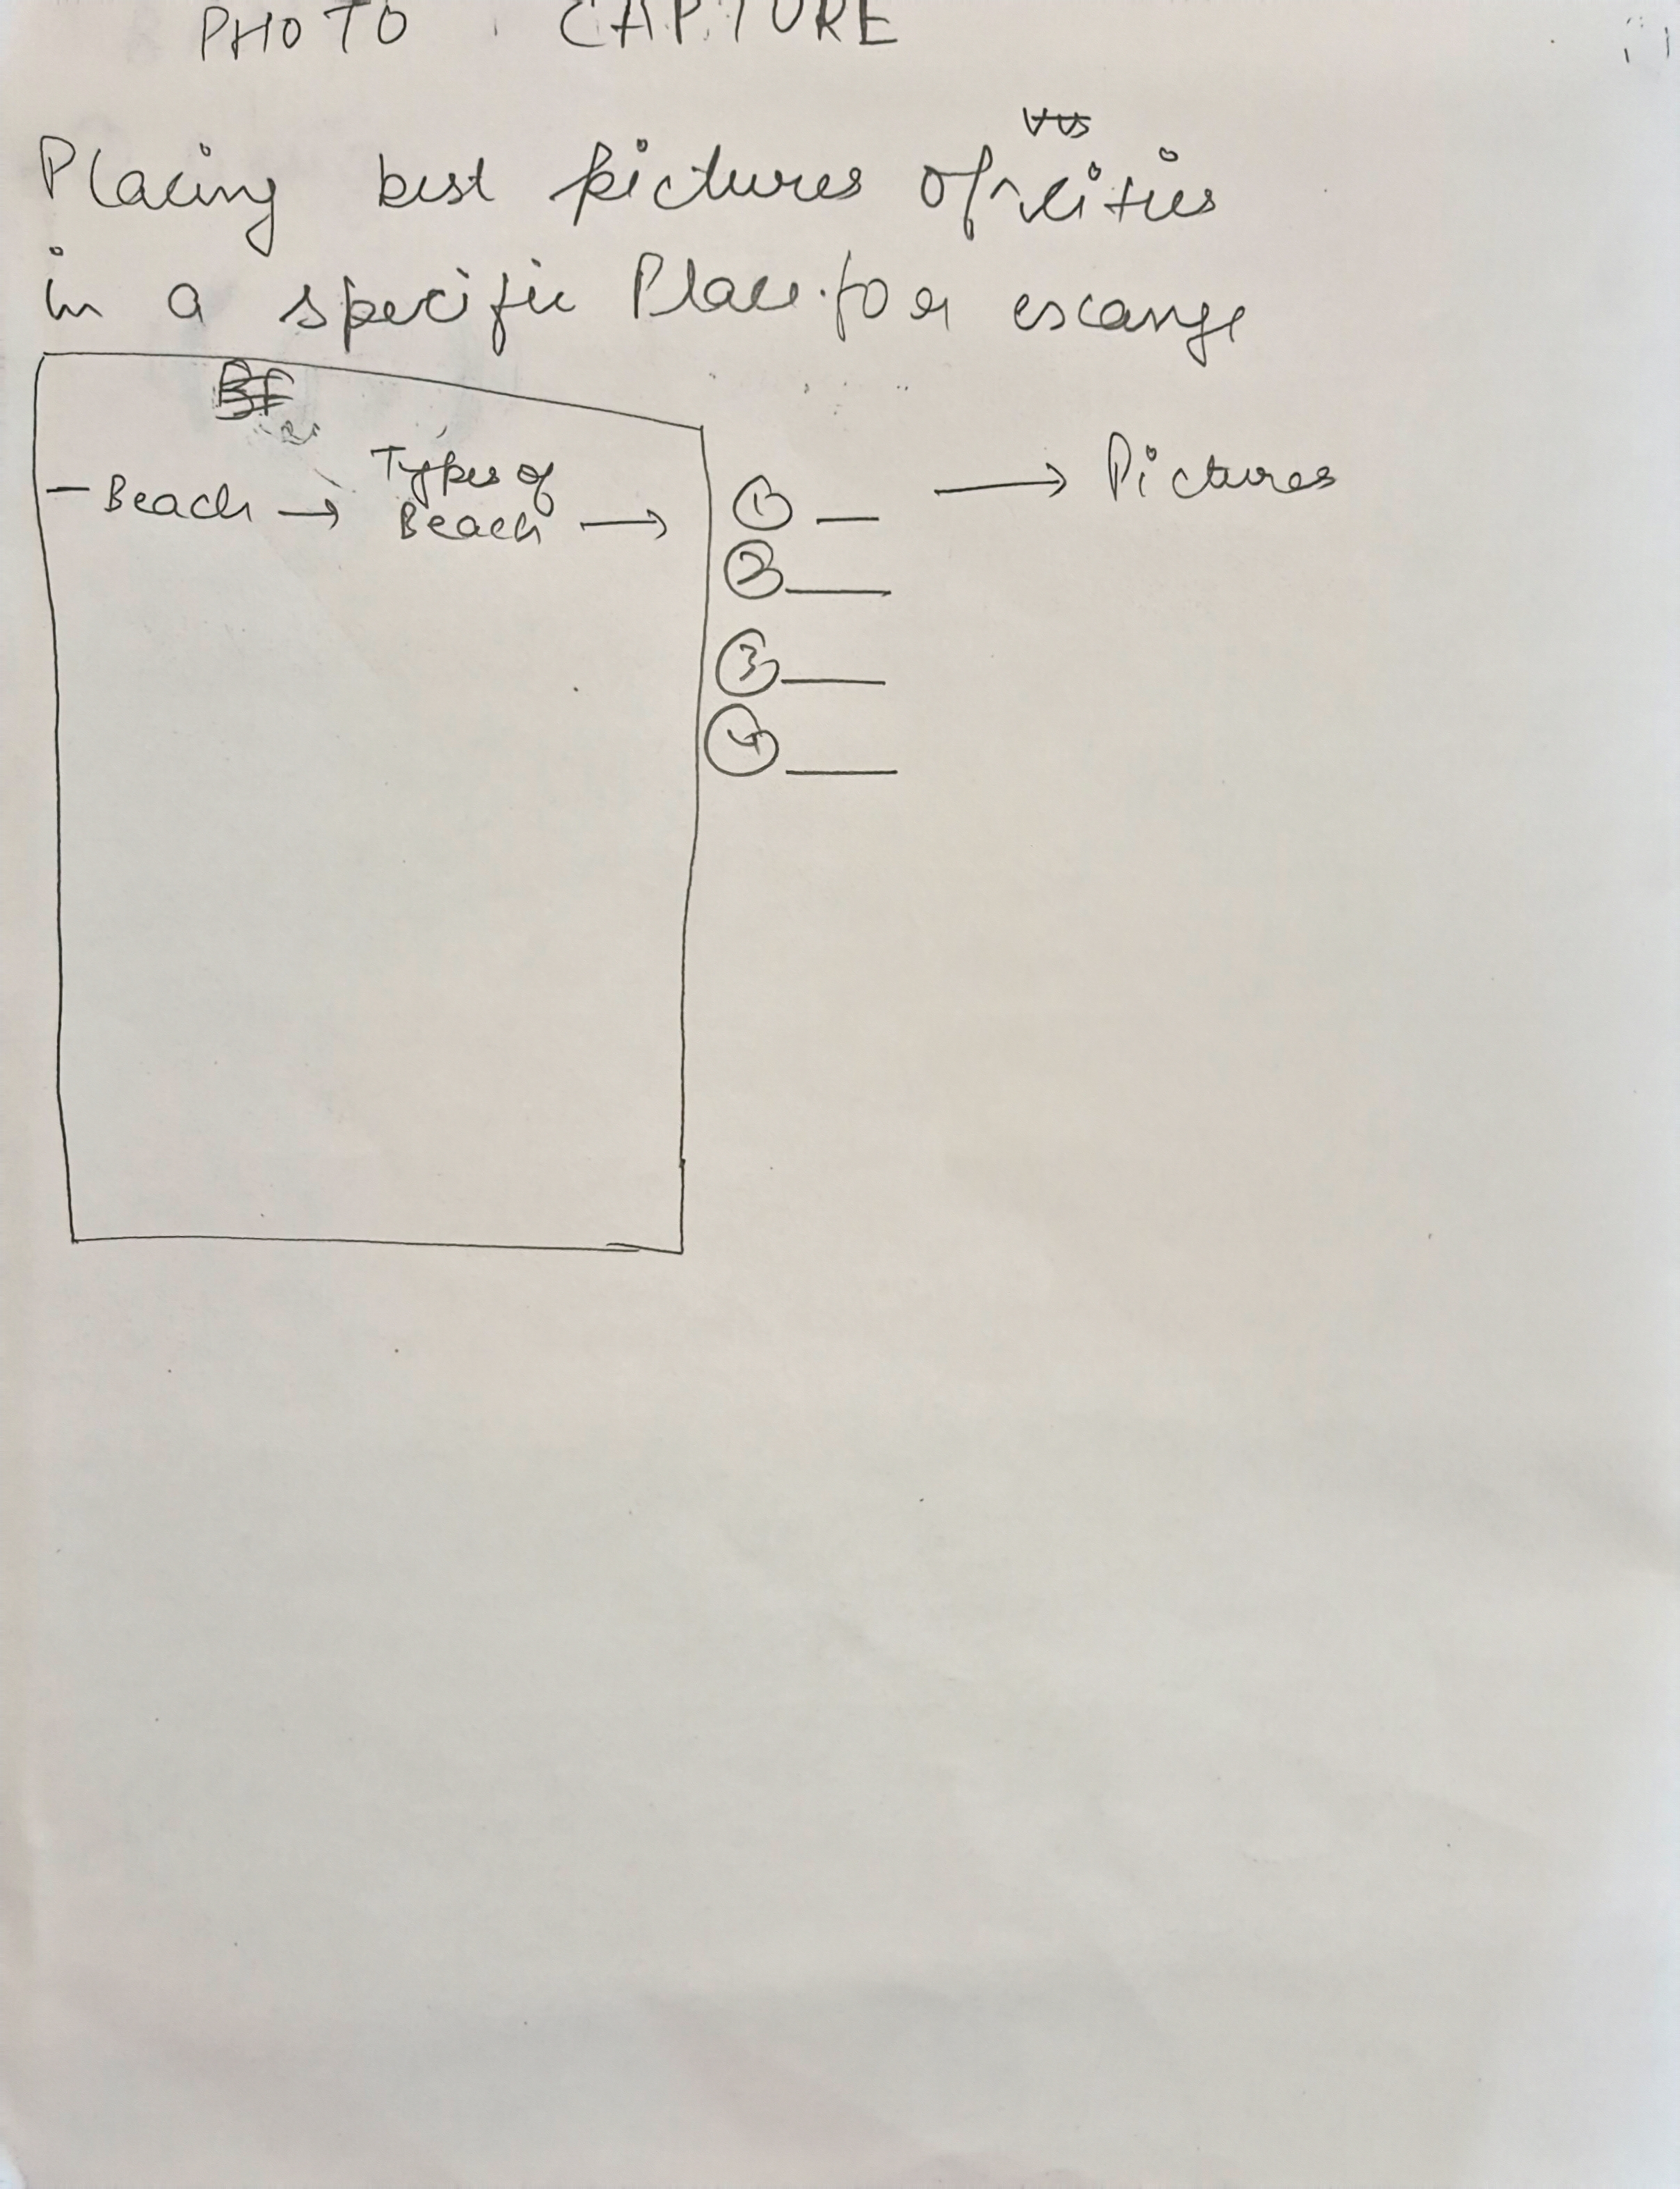 PHOTO CAPTURE
Placing best pictures of cities
in a specific Place. for escange
- Beach → Types of Beach → ① — → Pictures
② —
③ —
④ —